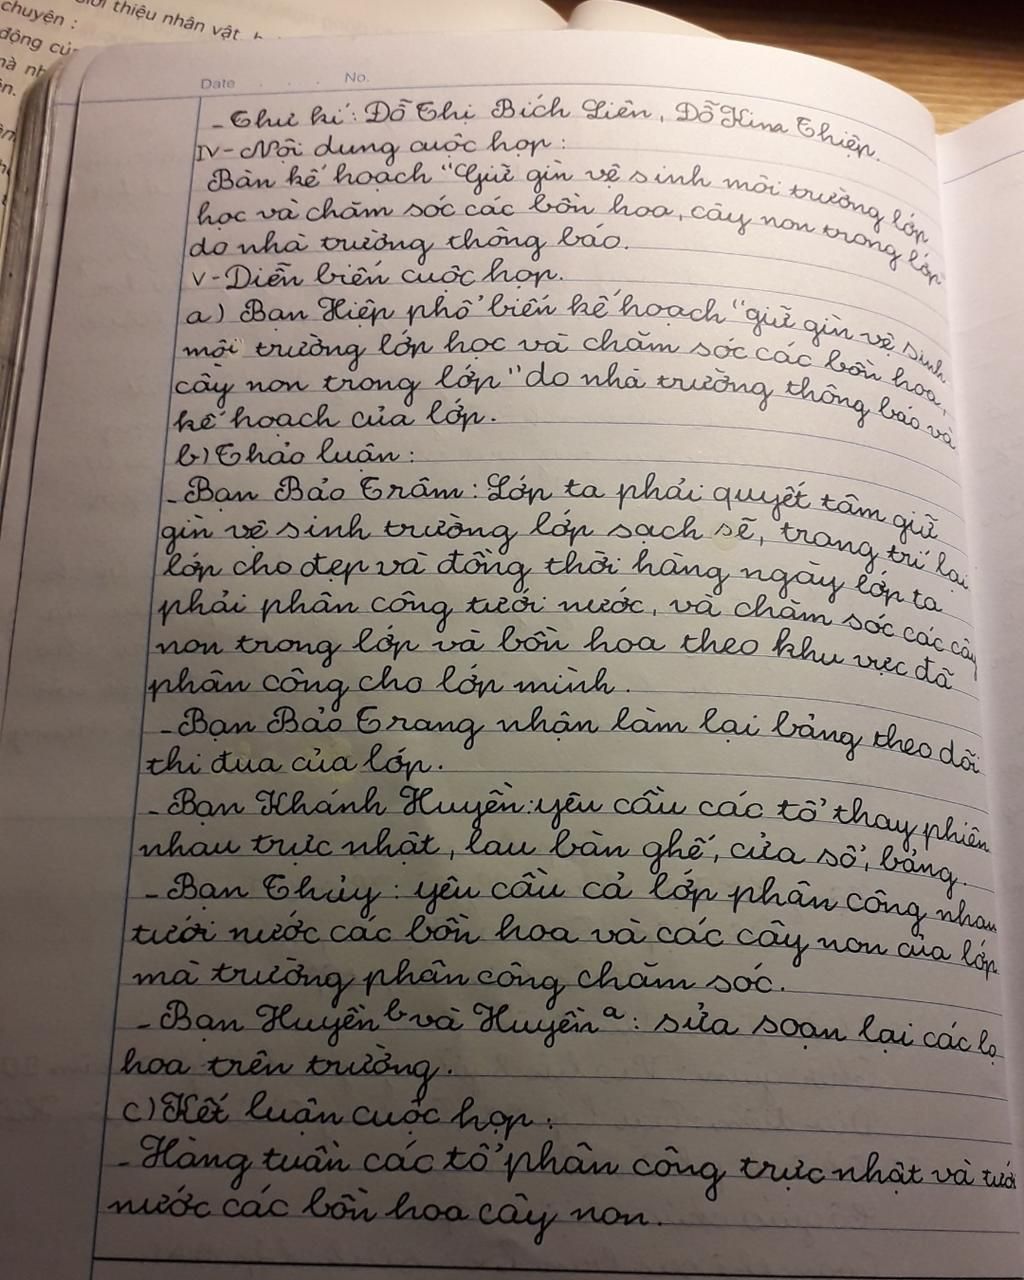 chuyện :
thiệu nhân vật
động của
Date No.
- Thư kí : Đỗ Thị Bích Liên, Đỗ Hina Thiệp.
IV- Nội dung cuộc họp :
Bàn kế hoạch "Giữ gìn vệ sinh môi trường lớp
học và chăm sóc các bồn hoa, cây non trong lớp"
do nhà trường thông báo.
V- Diễn biến cuộc họp.
a) Bạn Hiệp phổ biến kế hoạch "giữ gìn vệ sinh
môi trường lớp học và chăm sóc các bồn hoa,
cây non trong lớp" do nhà trường thông báo và
kế hoạch của lớp.
b) Thảo luận :
- Bạn Bảo Trâm : Lớp ta phải quyết tâm giữ
gìn vệ sinh trường lớp sạch sẽ, trang trí lại
lớp cho đẹp và đồng thời hàng ngày lớp ta
phải phân công tưới nước, và chăm sóc các cây
non trong lớp và bồn hoa theo khu vực đã
phân công cho lớp mình.
- Bạn Bảo Trang nhận làm lại bảng theo dõi
thi đua của lớp.
- Bạn Khánh Huyền : yêu cầu các tổ thay phiên
nhau trực nhật, lau bàn ghế, cửa sổ, bảng.
- Bạn Thủy : yêu cầu cả lớp phân công nhau
tưới nước các bồn hoa và các cây non của lớp
mà trường phân công chăm sóc.
- Bạn Huyền b và Huyền a : sửa soạn lại các lọ
hoa trên trường.
c) Kết luận cuộc họp :
- Hàng tuần các tổ phân công trực nhật và tưới
nước các bồn hoa cây non.